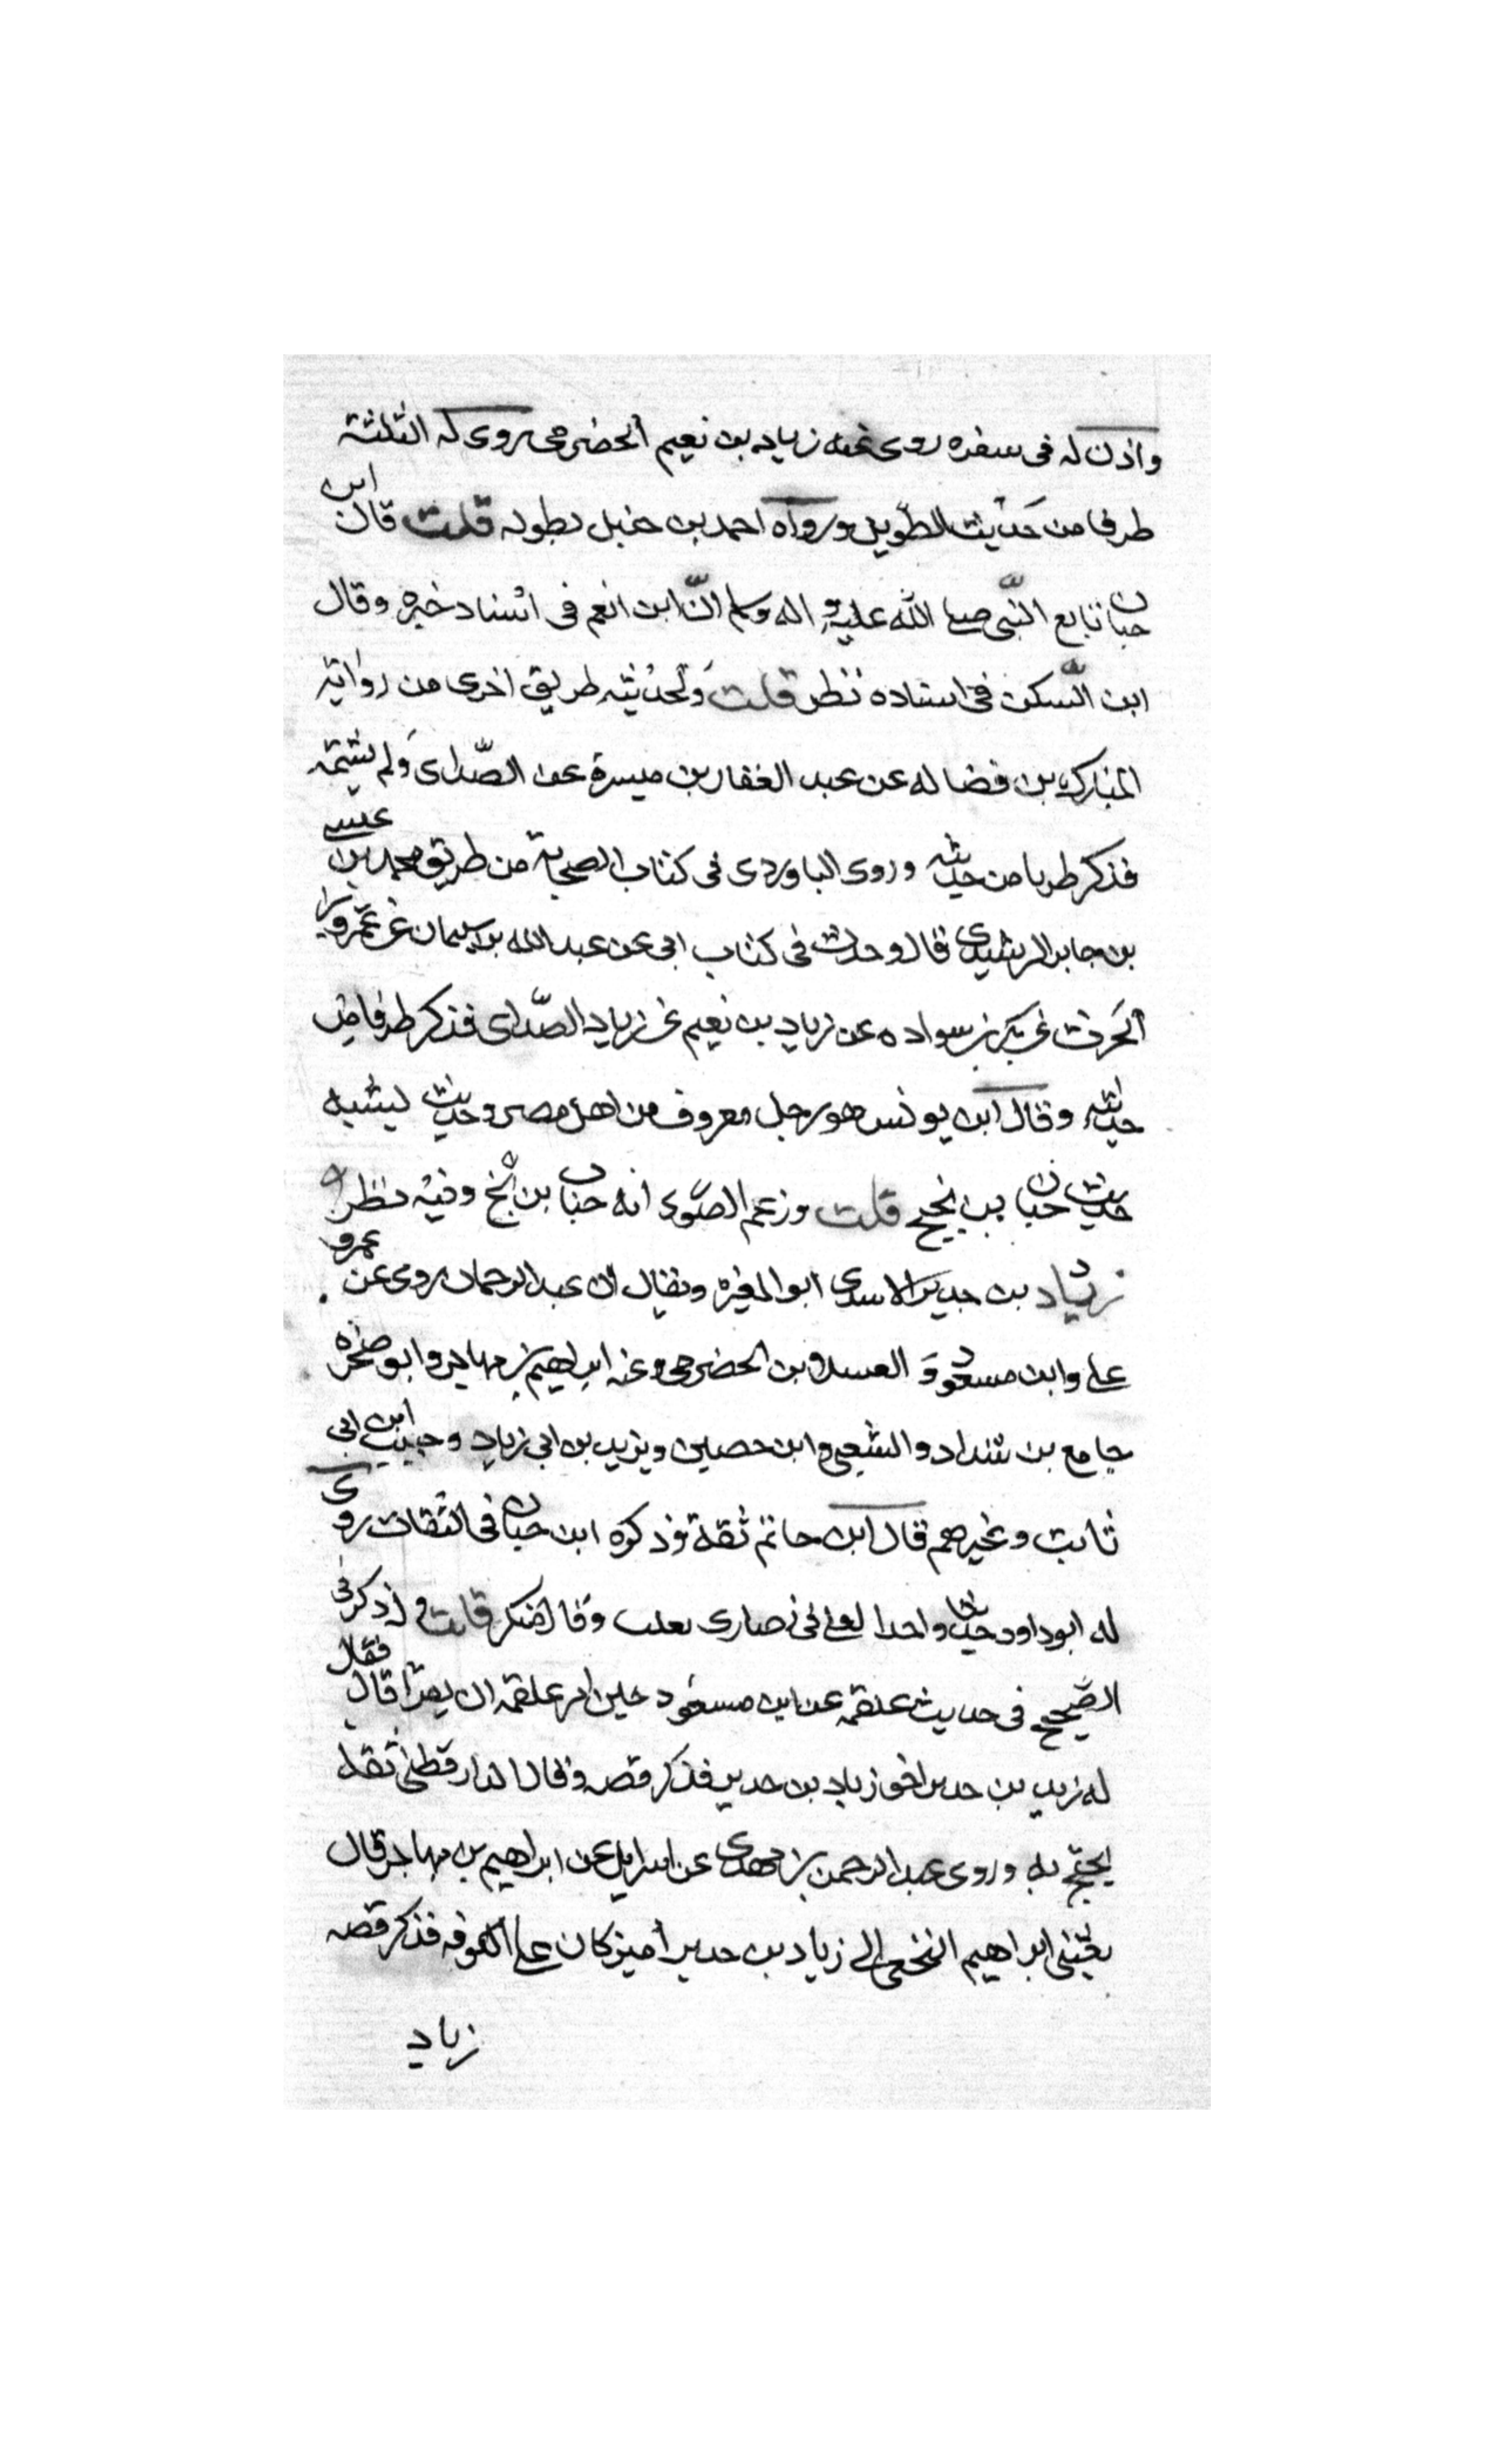 واذن له فى سفره روى عنه زياد بن نعيم الحضرمى روى له الثلثة
طرفا من حديث الطويل ورواه احمد بن حنبل بطوله قلت قال ابن
حبان تابع النبى صلى الله عليه واله وسلم الّا ان ابن انعم فى اسناد خبره وقال
ابن السكن فى اسناده نظر قلت ولحديثه طريق اخرى من رواية
المبارك بن فضاله عن عبد الغفار بن ميسرة عن الصدائ ولم يسمّه
فذكر طرفا من حديثه وروى الباوردى فى كتاب الصحابة من طريق محمد بن عيسى
بن جابر الرشيدى قال وحدت فى كتاب ابى عن عبد الله بن سليمان عن عمرو بن
الحرث عن بكر بن سواده عن زياد بن نعيم عن زياد الصدائ فذكر طرفا من
حديثه وقال ابن يونس هو رجل معروف من اهل مصر وحديث يشبه
حديث حبان بن بحّ قلت وزعم الصورى انه حبان بن بح وفيه نظر ه
زياد بن حدير الاسدى ابو المغيرة ويقال ان عبد الرحمان روى عن عمرو
على وابن مسعود و العسلا بن الحضرمى وعنه ابراهيم بن مهاجر وابو صخره
جامع بن شداد والشعبى وابن حصين ويزيد بن ابى زياد وحبيب ابن ابى
ثابت وغيرهم قال ابن حاتم ثقة وذكره ابن حبان فى الثقات روى
له ابو داود حديثا واحدا لعلى فى نصارى تعلب وقال منكر قلت و له ذكر فى
الصحيح فى حديث علقمه عن ابن مسعود حين امر علقمه ان يقرأ قال فقال
له زيد بن حدير اخو زياد بن حدير فذكر قصه وقال الدارقطنى ثقه
يحتج به وروى عبد الرحمن بن مهدى عن اسرايل عن ابراهيم بن مهاجر قال
بعثنى ابراهيم النخعى الى زياد بن حدير أمير كان على الكوفه فذكر قصه
زياد